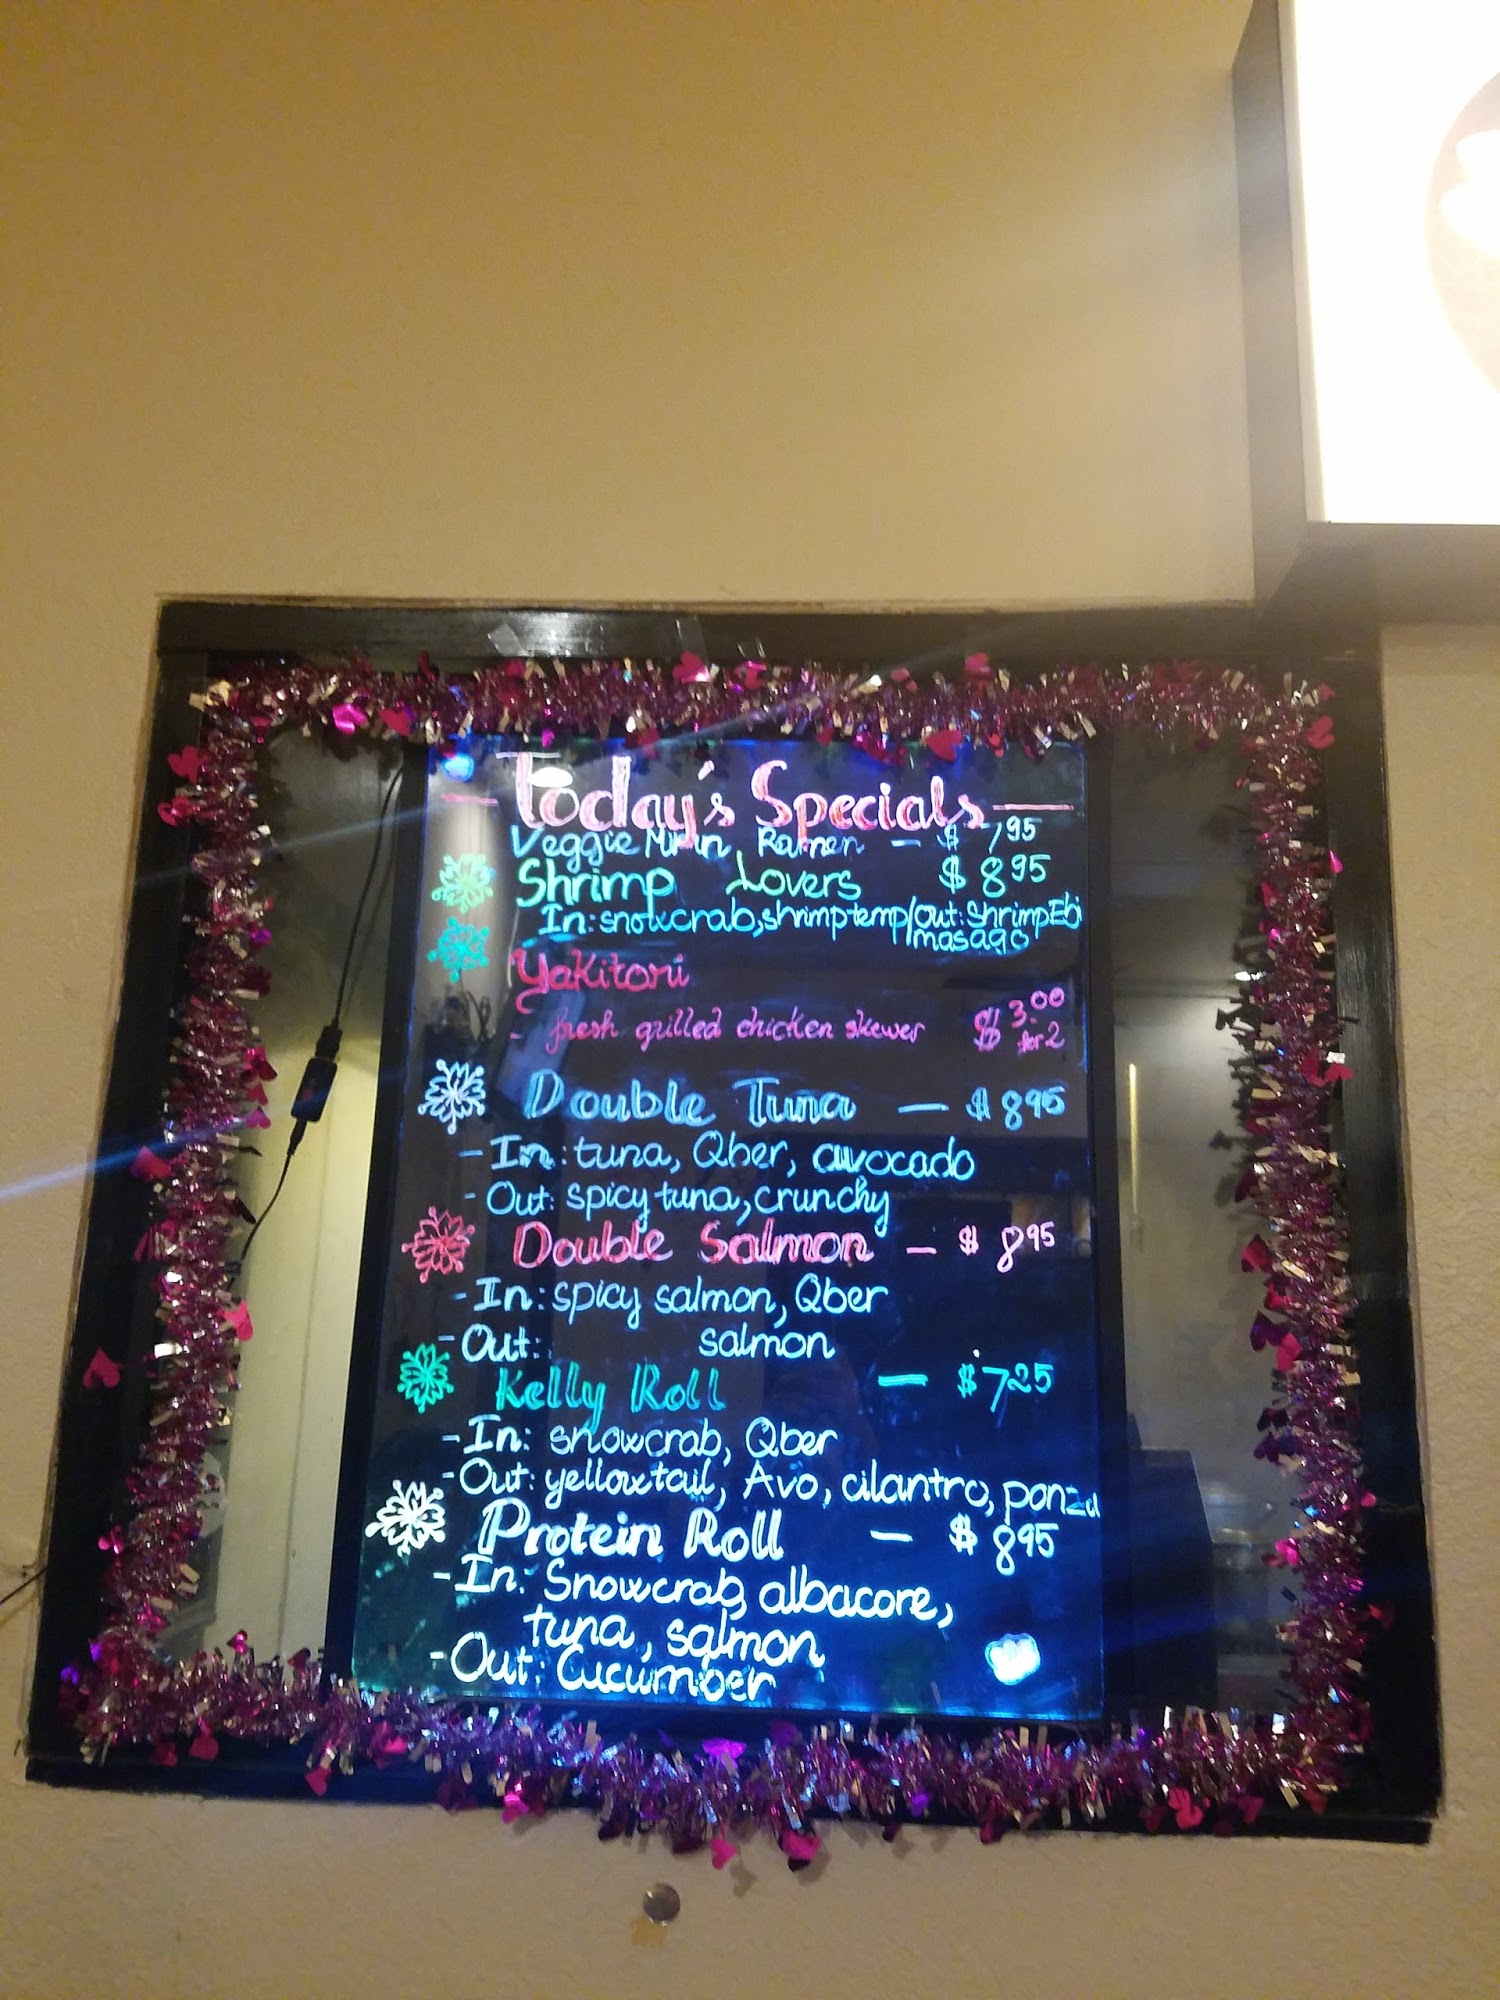 Today's Specials
Veggie Mirin Ramen — $7.95
Shrimp Lovers $8.95
In: snowcrab, shrimp temp/out: Shrimp Ebi
masago
Yakitori
- fresh grilled chicken skewer $3.00
for 2
Double Tuna — $8.95
- In: tuna, Qber, avocado
- Out: spicy tuna, crunchy
Double Salmon — $8.95
- In: spicy salmon, Qber
- Out: salmon
Kelly Roll — $7.25
- In: snowcrab, Qber
- Out: yellowtail, Avo, cilantro, ponzu
Protein Roll — $8.95
- In: Snowcrab, albacore,
tuna, salmon
- Out: Cucumber